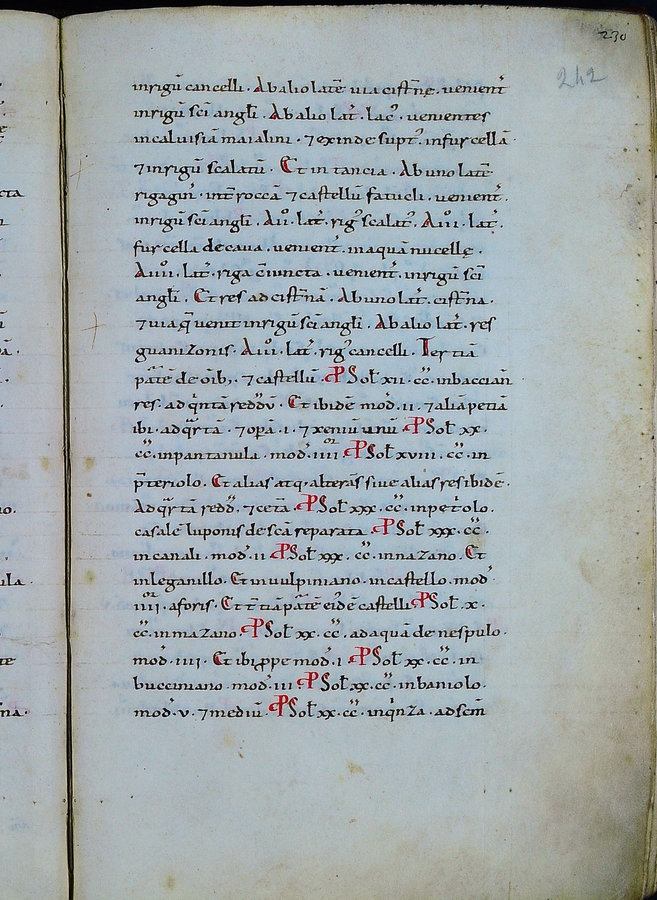 230
242
inrigū cancelli . Ab alio latē via cistnę . venienť
inrigū sci angli . Ab alio lať . lac̉ . venientes
incalvisia maialini . ⁊ exinde supť . infurcellā
⁊ inrigū scalatū . Et in tancia . Ab uno latē
rigagini . intˉ roccā ⁊ castellū fatucli . venienť .
inrigū sci angli . A ii° . lať . rig̉ scalať . A iii . lať .
furcella decava . venienť . inaquā nucellę .
A iiii . lať . riga c̄iuncta . venienť . inrigū sci
angli . Et res ad cistnā . Ab uno lať . cistna .
⁊ via q̄ venit inrigū sci angli . Ab alio lať . res
guanizonis . A iii . lať . rig̉ cancelli . Tertiā
partē de oīb; . ⁊ castellū . P Sol xii . cc . inbaccian
res . ad qntā reddū . Et ibidē mod . ii . ⁊ aliā petiā
ibi . ad qrtā . ⁊ opā . i . ⁊ xeniū unū P Sol xx .
cc . inpantanula . mod . iiii or P Sol xviii . cc . in
p̄teriolo . Et alias atq; alterās sive alias res ibidē .
Ad qrtā redd . ⁊ cetā . P Sol xxx . cc . inpetˉolo .
casale luponis de scā reparata P Sol xxx . cc .
in canali . mod . ii P Sol xxx . cc . innazano . Et
inleganillo . Et in vulpiniano . incastello . mod
iiii or . aforis . Et tˉtiā partē eidē castelli P Sol . x .
cc . inmazano . P Sol xx . cc . ad aquā de nespulo .
mod . iiii . Et ibi ꝓpe mod . i P Sol xx . cc . in
bucciniano . mod . iii P Sol xx . cc . inbaniolo .
mod . v . ⁊ mediū . P Sol xx . cc . inqnza . ad scm